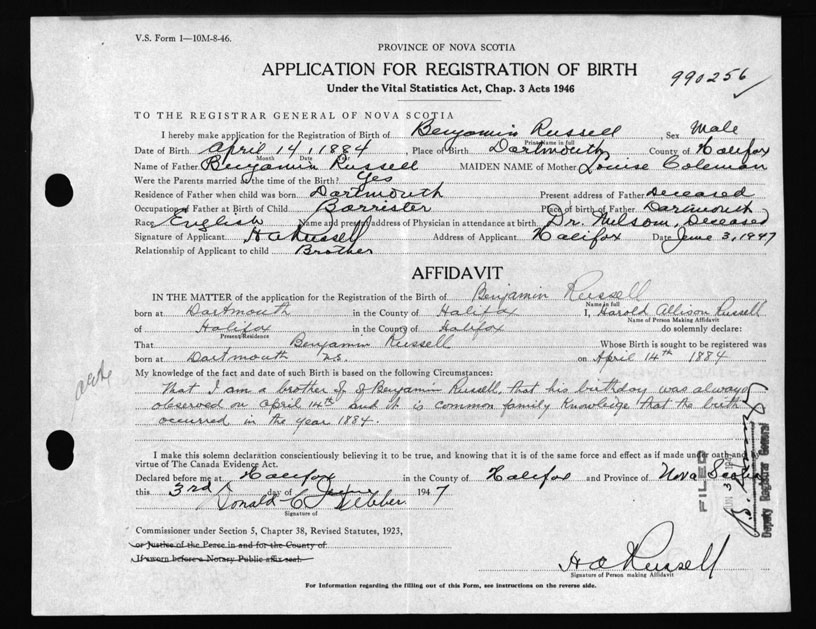 V.S. Form 1—10M-8-46.
PROVINCE OF NOVA SCOTIA
APPLICATION FOR REGISTRATION OF BIRTH
990256
Under the Vital Statistics Act, Chap. 3 Acts 1946
TO THE REGISTRAR GENERAL OF NOVA SCOTIA
I hereby make application for the Registration of Birth of Benjamin Russell, Sex Male
Print Name in full
Date of Birth April 14, 1884, Place of Birth Dartmouth County of Halifax
Month Date Year
Name of Father Benjamin Russell MAIDEN NAME of Mother Louise Coleman
Were the Parents married at the time of the Birth? Yes
Residence of Father when child was born Dartmouth Present address of Father Deceased
Occupation of Father at Birth of Child Barrister Place of birth of Father Dartmouth
Race English Name and present address of Physician in attendance at birth Dr. Milsom, Deceased
Signature of Applicant H A Russell Address of Applicant Halifax Date June 3, 1947
Relationship of Applicant to child Brother
AFFIDAVIT
IN THE MATTER of the application for the Registration of the Birth of Benjamin Russell
Name in full
born at Dartmouth in the County of Halifax I, Harold Allison Russell
Name of Person Making Affidavit
of Halifax in the County of Halifax do solemnly declare:
Present Residence
That Benjamin Russell Whose Birth is sought to be registered was
born at Dartmouth N.S. on April 14th 1884
My knowledge of the fact and date of such Birth is based on the following Circumstances:
That I am a brother of Benjamin Russell, that his birthday was always
observed on April 14th and it is common family knowledge that the birth
occurred in the year 1884.
I make this solemn declaration conscientiously believing it to be true, and knowing that it is of the same force and effect as if made under oath and
virtue of The Canada Evidence Act.
Declared before me at Halifax in the County of Halifax and Province of Nova Scotia
this 3rd day of June 1947
Donald C Webber
Signature of
Commissioner under Section 5, Chapter 38, Revised Statutes, 1923,
or Justice of the Peace in and for the County of
If sworn before a Notary Public affix seal.
H A Russell
Signature of Person making Affidavit
For Information regarding the filling out of this Form, see instructions on the reverse side.
FILED
Deputy Registrar General